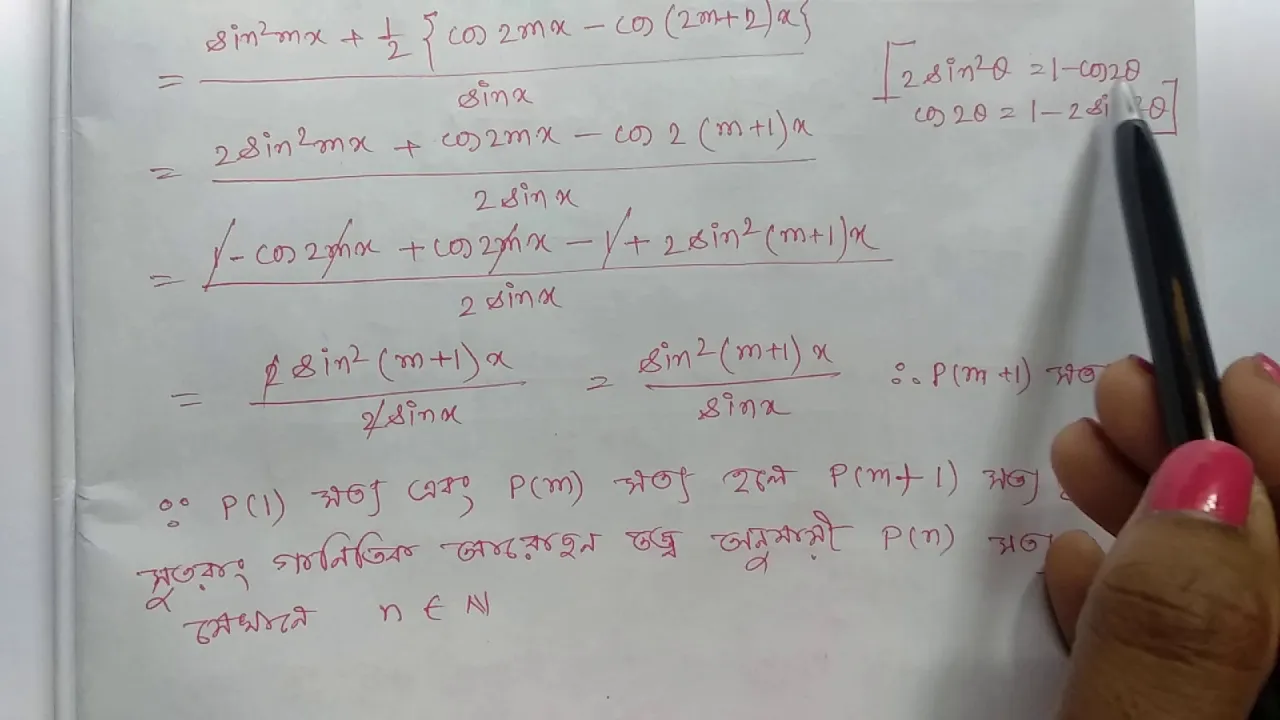 = sin²mx + ½ {cos 2mx − cos (2m+2)x} / sinx
[2 sin²θ = 1 − cos2θ
cos 2θ = 1 − 2 sin²θ]
= 2 sin²mx + cos2mx − cos 2 (m+1)x / 2 sin x
= 1 − cos 2mx + cos2mx − 1 + 2 sin² (m+1)x / 2 sinx
= 2 sin² (m+1) x / 2 sinx = sin² (m+1) x / sinx ∴ P(m+1)
∵ P(1) সত্য এবং P(m) সত্য হলে P(m+1) সত্য
সুতরাং গানিতিক আরোহন তত্ত্ব অনুযায়ী P(n) সত্য
যেখানে n ∈ N